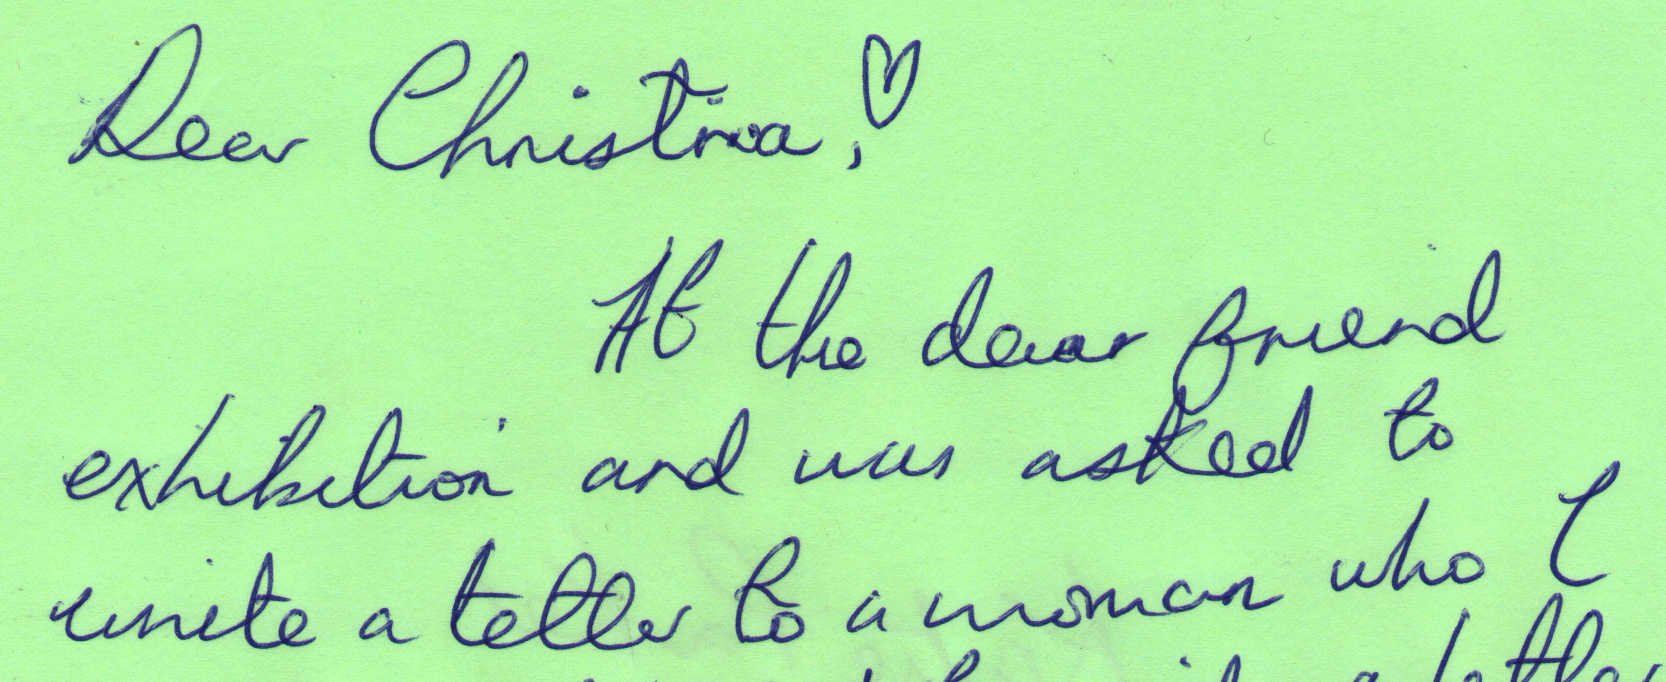 Dear Christina, ♡
At the dear friend
exhibition and was asked to
write a letter to a woman who I
a letter